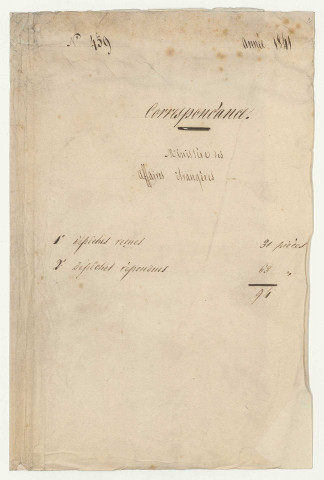 N° 459 année 1841
Correspondance.
Ministère des
affaires étrangères
1° dépêches reçues 31 pièces
2° dépêches répondues 63 "
94